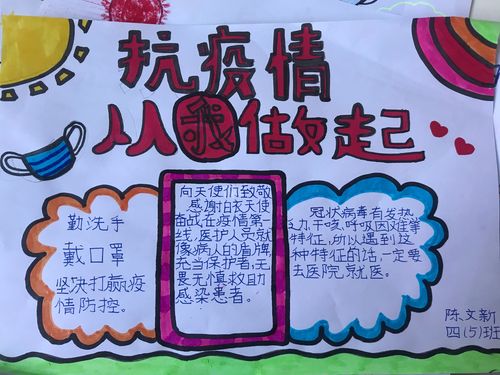 抗疫情
从我做起
勤洗手
戴口罩
坚决打赢疫
情防控。
向天使们致敬
感谢白衣天使
奋战在疫情第一
线,医护人员就
像病人的盾牌,
充当保护者,无
畏无惧救助
感染患者。
冠状病毒有发热
乏力,干咳,呼吸困难等
特征,所以遇到这
种特征的话,一定要
去医院就医。
陈文新
四(5)班